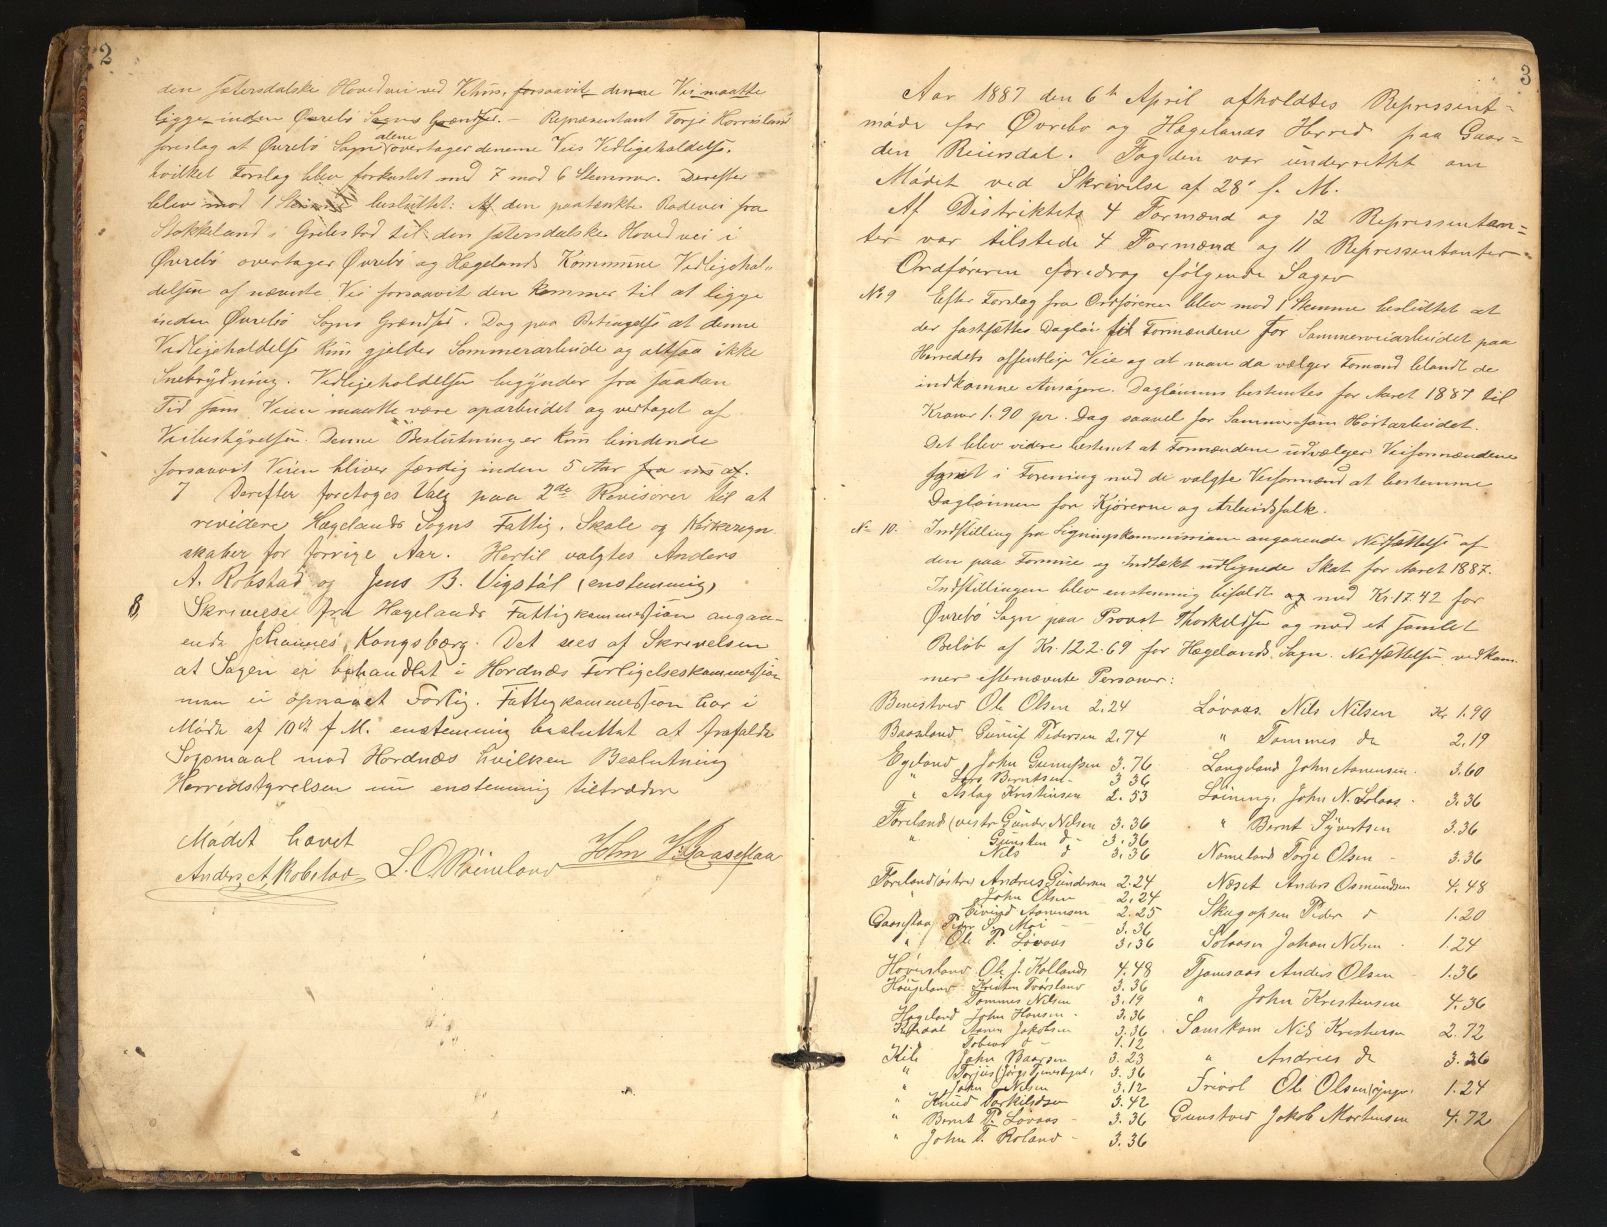 2
den sætersdalske Hovedvei ved Kehus, forsaavit denne Vei maatte
ligge inden Øvrebø Sogns Grændser. – Repræsentant Torje Homsland
foreslog at Øvrebø Sogn alene overtager denne Veis Vedligeholdelse.
hvilket Forslag blev forkastet med 7 mod 6 Stemmer. Derefter
blev mod 1 Stemme besluttet: At den paatænkte Rodevei fra
Stokkeland i Greipstad til den sætersdalske Hovedvei i
Øvrebø overtager Øvrebø og Hægelands Kommune Vedligehol-
delsen af nævnte Vei forsaavit den kommer til at ligge
inden Øvrebø Sogns Grændser. Dog paa Betingelse at denne
Vedligeholdelse kun gjelder Sommerarbeide og altsaa ikke
Snebrydning. Vedligeholdelsen begynder fra saadan
Tid som Veien maatte være oparbeidet og vedtaget af
Veibestyrelsen. Denne Beslutning er kun bindende
forsaavit Veien bliver færdig inden 5 Aar fra nu af.
7 Derefter foretoges Valg paa 2de Revisorer til at
revidere Hægelands Sogns Fattig, Skole og Kirkeregn
skaber for forrige Aar. Hertil valgtes Anders
A. Robstad og Jens B. Vigstøl (enstemmig)
8, Skrivelse fra Hægelands Fattigkommission angaa-
ende Johannes Kongsberg. Det sees af Skrivelsen
at Sagen er behandlet i Hordnæs Forligelseskommission
man ei opnaaet Forlig. Fattigkommission har i
Møde af 10de f. M. enstemmig besluttet at frafalde
Sogsmaal mod Hordnæs hvilken Beslutning
Herredstyrelsen nu enstemmig tiltræder
Mødet hævet
Anders A. Robstad L. O. Røineland John K. Gaaseflaa
3
Aar 1887 den 6th April afholdtes Repressent=
møde for Øvrebo og Hægelands Herred paa Gaar=
den Reiersdal. Fogden var underrettet om
Mødet ved Skrivelse af 28' f. M.
Af Distriktets 4 Formænd og 12 Repressentan=
ter var tilstede 4 Formænd og 11 Repressentanter
Ordføreren foredrog følgende Sager
No 9 Efter Forslag fra Ordføreren blev mod 1 Stemme besluttet at
der fastsættes Dagløn til Formændene for Sommerveiarbeidet paa
Herredets offentlige Veie og at man da vælger Formænd blandt de
indkomne Ansøgere. Daglønnen bestemtes for Aaret 1887 til
Kroner 1.90 pr. Dag saavel for Sommer som Høstarbeidet.
Det blev videre bestemt at Formændene udvælger Veiformændene
i Forening med de valgte Veiformænd at bestemme
Daglønnen for Kjørerne og Arbeidsfolk.
No 10. Indstilling fra Ligningskommissionen angaaende Nedsættelse af
den paa Formue og Indtækt udlignede Skat for Aaret 1887.
Indstillingen blev enstemmig bifaldt og med Kr. 17.42 for
Øvrebø Sogn paa Provst Thorkildsen og med et samlet
Beløb af Kr. 122.69 for Hægelands Sogn. Nedsættelsen vedkom
mer efternævnte Personer:
Benestved Ole Olsen 2.24
Baasland Gunuf Pedersen 2.74
Egeland John Gunufsen 3.76
" Lars Berntsen 3.36
" Aslag Kristensen 2.53
Foreland (vestr Gunder Nilsen 3.36
" Gjeruften d – 3.36
Nils d 3.36
Foreland (østre) Andreas Gundersen 2.24
" John Olsen – 2.24
Eivind Aanensen 2.25
Gaaseflaa Peder S. Moi – 3.36
" Ole T. Løvaas 3.36
Høversland Ole J. Kolland 4.48
Haugeland Kristen Tvørsland 3.36
Tommes Nilsen 3.19
Hageland John Hansen – 3.36
Aanen Jakobsen 3.36
Tobias d – 1.12
Kile John Baarsen 3.23
" 3.36
" John Nilsen 3.12
" Knud Torkildsen 3.42
" Bernt T. Løvaas – 3.36
" John T. Roland – 3.36
Løvaas. Nils Nilsen Kr 1.90
" Tommes do 2.19
Langeland John Aanensen. 3.60
Løining. John N. Løvaas. 3.36
" Bernt Syvertsen 3.36
Nomeland Torje Olsen – 3.36
Næset Anders Osmundsen 4.48
Skagopsen Peder d 1.20
Solaasen Johan Nilsen – 1.24
Tjomsaas Anders Olsen – 1.36
" John Kristensen 4.36
Samkom Nils Kristensen 2.72
" Andreas do 3.36
Frivol Ole Olsen (yngr. 1.24
Gunstved Jakob Mortensen 4.72